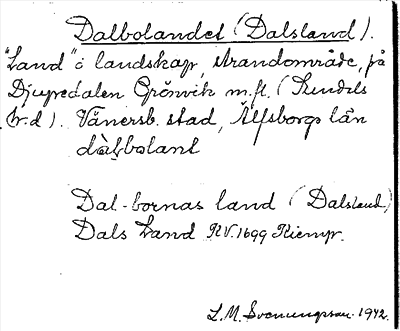 Dalbolandet (Dalsland).
"Land" ö landskap, strandområde, på
Djupedalen Grönvik m.fl. (Sundals
hr.d). Vänersb. stad, Älfsborgs län
dàlbolant
Dal-bornas land (Dalsland)
Dals Land RV. 1699 Riempr.
L. M. Svenungsson 1942.